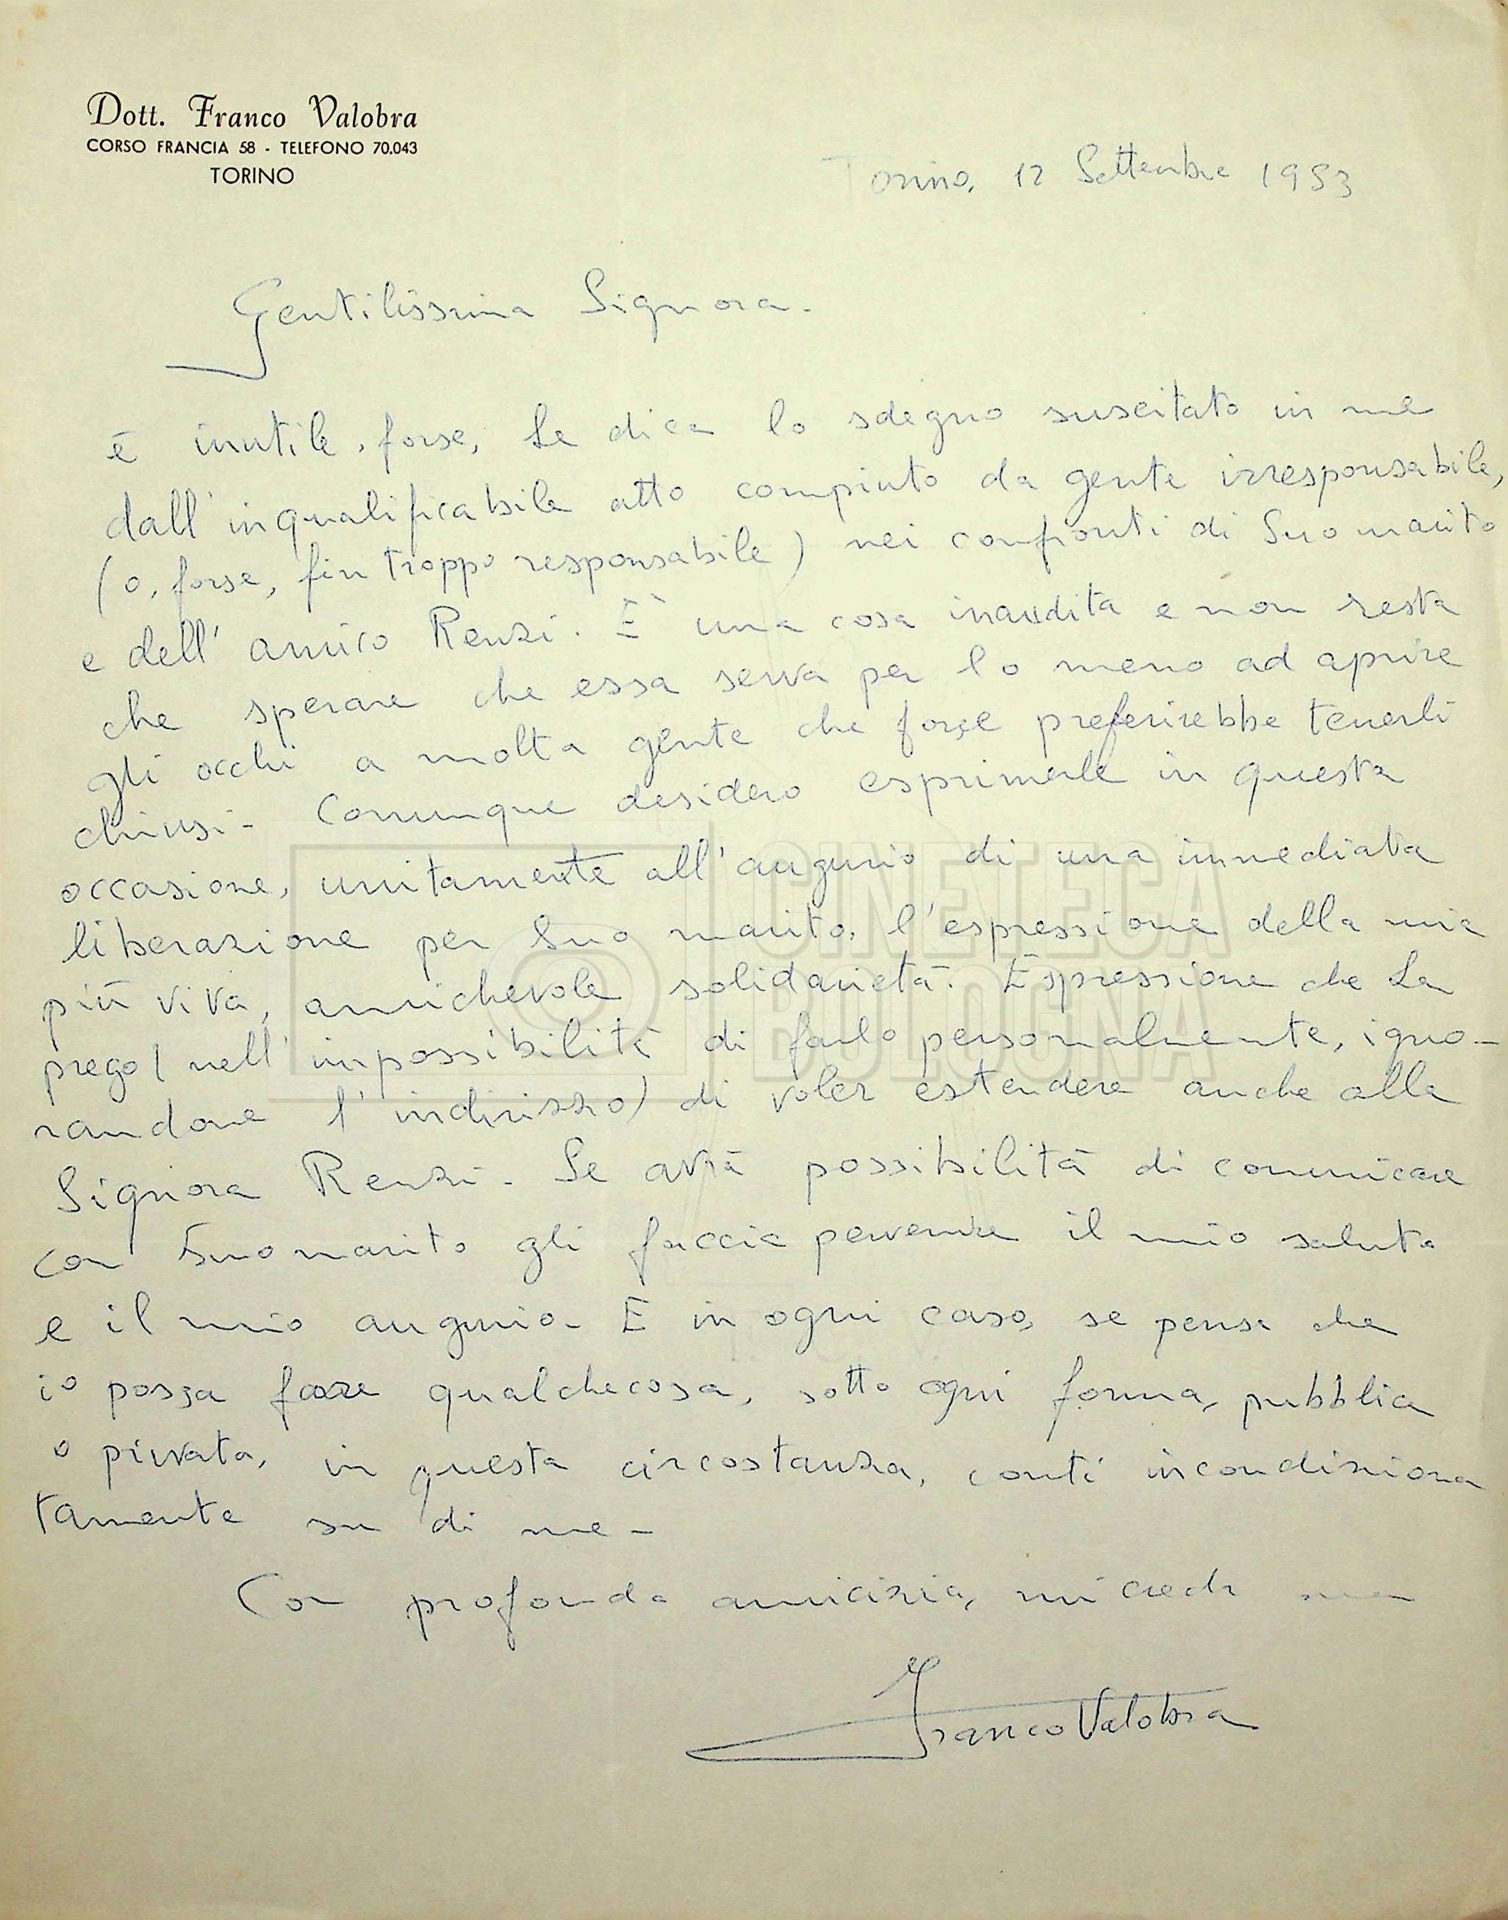 Dott. Franco Valobra
CORSO FRANCIA 58 - TELEFONO 70.043
TORINO
Torino, 12 Settembre 1953
Gentilissima Signora.
è inutile, forse, Le dica lo sdegno suscitato in me
dall'inqualificabile atto compiuto da gente irresponsabile,
(o, forse, fin troppo responsabile) nei confronti di Suo marito
e dell'amico Renzi. È una cosa inaudita e non resta
che sperare che essa serva per lo meno ad aprire
gli occhi a molta gente che forse preferirebbe tenerli
chiusi - Comunque desidero esprimerle in questa
occasione, unitamente all'augurio di una immediata
liberazione per Suo marito, l'espressione della mia
più viva, amichevole solidarietà. Espressione che La
prego (nell'impossibilità di farlo personalmente, igno-
randone l'indirizzo) di voler estendere anche alla
Signora Renzi - Se avrà possibilità di comunicare
con Suo marito gli faccia pervenire il mio saluto
e il mio augurio - E in ogni caso, se pensa che
io possa fare qualchecosa, sotto ogni forma, pubblica
o privata, in questa circostanza, conti incondiziona
tamente su di me -
Con profonda amicizia, mi creda suo
Franco Valobra
CINETECA
BOLOGNA